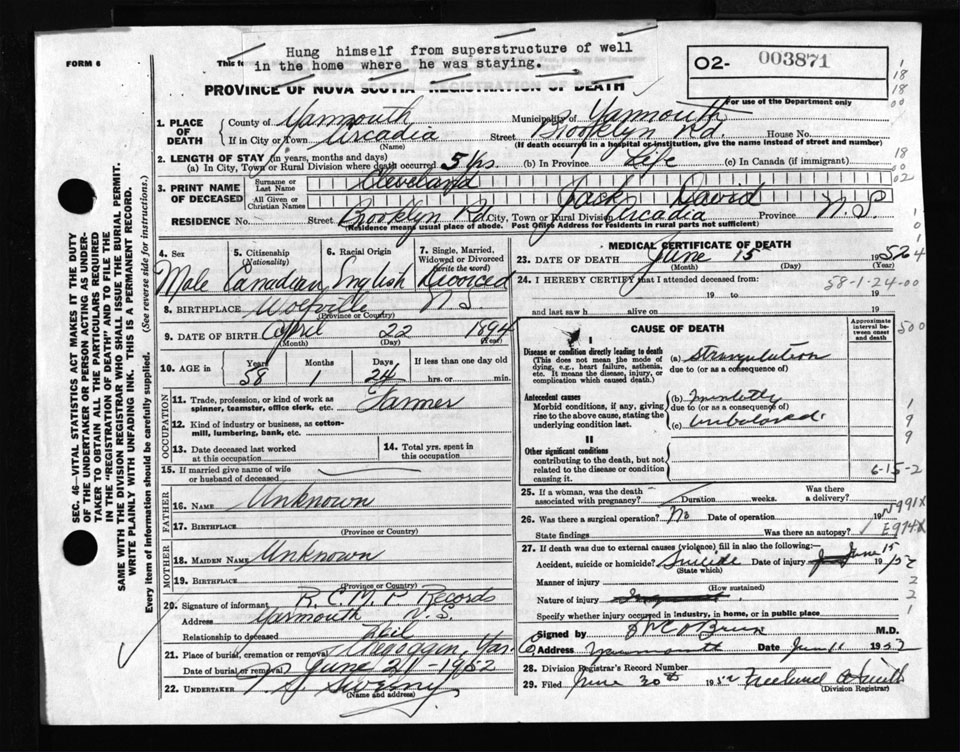 Hung himself from superstructure of well
in the home where he was staying.
FORM 6
This
O2- 003871
For use of the Department only
PROVINCE OF NOVA SCOTIA—REGISTRATION OF DEATH
1. PLACE OF DEATH
County of Yarmouth Municipality of Yarmouth
If in City or Town Arcadia Street Brooklyn Rd. House No.
(Name) (If death occurred in a hospital or institution, give the name instead of street and number)
2. LENGTH OF STAY (in years, months and days)
(a) In City, Town or Rural Division where death occurred 5 Yrs (b) In Province Life (c) In Canada (if immigrant)
3. PRINT NAME OF DECEASED
Surname or Last Name Cleveland
All Given or Christian Names Jack David
RESIDENCE No. Street Brooklyn Rd City, Town or Rural Division Arcadia Province N.S.
(Residence means usual place of abode. Post Office Address for residents in rural parts not sufficient)
4. Sex Male
5. Citizenship (Nationality) Canadian
6. Racial Origin English
7. Single, Married, Widowed or Divorced (write the word) Divorced
8. BIRTHPLACE Wolfville N.S.
(Province or Country)
9. DATE OF BIRTH April 22 1894
(Month) (Day) (Year)
10. AGE in Years 58 Months 1 Days 24 If less than one day old hrs. or min.
OCCUPATION
11. Trade, profession, or kind of work as spinner, teamster, office clerk, etc. Farmer
12. Kind of industry or business, as cotton-mill, lumbering, bank, etc.
13. Date deceased last worked at this occupation
14. Total yrs. spent in this occupation
15. If married give name of wife or husband of deceased
FATHER
16. NAME Unknown
17. BIRTHPLACE
(Province or Country)
MOTHER
18. MAIDEN NAME Unknown
19. BIRTHPLACE
(Province or Country)
20. Signature of informant R.C.M.P Records
Address Yarmouth N.S.
Relationship to deceased Nil
21. Place of burial, cremation or removal Chegoggin, Yar. Co
Date of burial or removal June 21 - 1952
22. UNDERTAKER Sweeny
(Name and address)
MEDICAL CERTIFICATE OF DEATH
23. DATE OF DEATH June 15 1952
(Month) (Day) (Year)
24. I HEREBY CERTIFY that I attended deceased from: 58-1-24-00
19 to 19
and last saw h alive on 19
CAUSE OF DEATH
Approximate interval between onset and death
I
Disease or condition directly leading to death
(This does not mean the mode of dying, e.g., heart failure, asthenia, etc. It means the disease, injury, or complication which caused death.)
(a) strangulation
due to (or as a consequence of)
Antecedent causes
Morbid conditions, if any, giving rise to the above cause, stating the underlying condition last.
(b) mentally
due to (or as a consequence of)
(c) unbalanced.
II
Other significant conditions
contributing to the death, but not related to the disease or condition causing it.
6-15-2
25. If a woman, was the death associated with pregnancy? Duration weeks. Was there a delivery?
26. Was there a surgical operation? No Date of operation 19
N991X
State findings Was there an autopsy?
E974X
27. If death was due to external causes (violence) fill in also the following:—
Accident, suicide or homicide? Suicide Date of injury June 15 1952
(State which)
Manner of injury
(How sustained)
Nature of injury
Specify whether injury occurred in industry, in home, or in public place
Signed by O'Brien M.D.
Address Yarmouth Date Jun 11 1952
28. Division Registrar's Record Number
29. Filed June 30th 1952
(Division Registrar)
SEC. 46—VITAL STATISTICS ACT MAKES IT THE DUTY
OF THE UNDERTAKER OR PERSON ACTING AS UNDER-
TAKER TO OBTAIN ALL THE PARTICULARS REQUIRED
IN THE "REGISTRATION OF DEATH" AND TO FILE THE
SAME WITH THE DIVISION REGISTRAR WHO SHALL ISSUE THE BURIAL PERMIT.
WRITE PLAINLY WITH UNFADING INK. THIS IS A PERMANENT RECORD.
Every item of information should be carefully supplied. (See reverse side for instructions.)